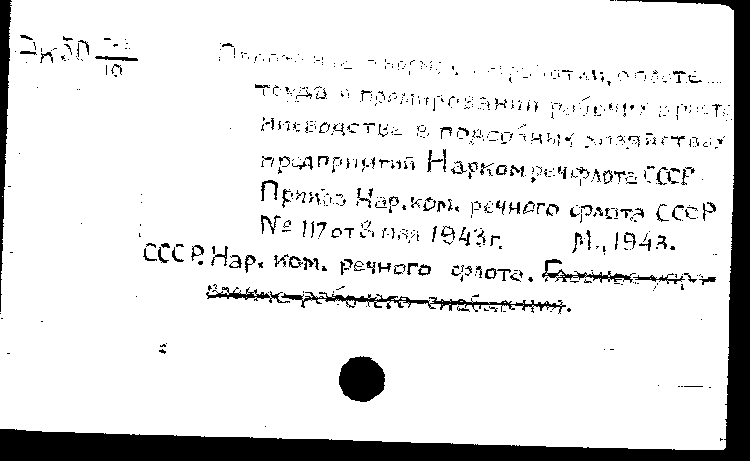 Эк50
10
Положение о нормах выработки, оплате
труда и премировании рабочих в расте
ниеводстве в подсобных хозяйствах
предприятий Наркомречфлота СССР.
Приказ Нар.ком. речного флота СССР
№ 117 от 8 мая 1943 г. М., 1943.
СССР. Нар. ком. речного флота. Главное упра-
вление рабочего снабжения.